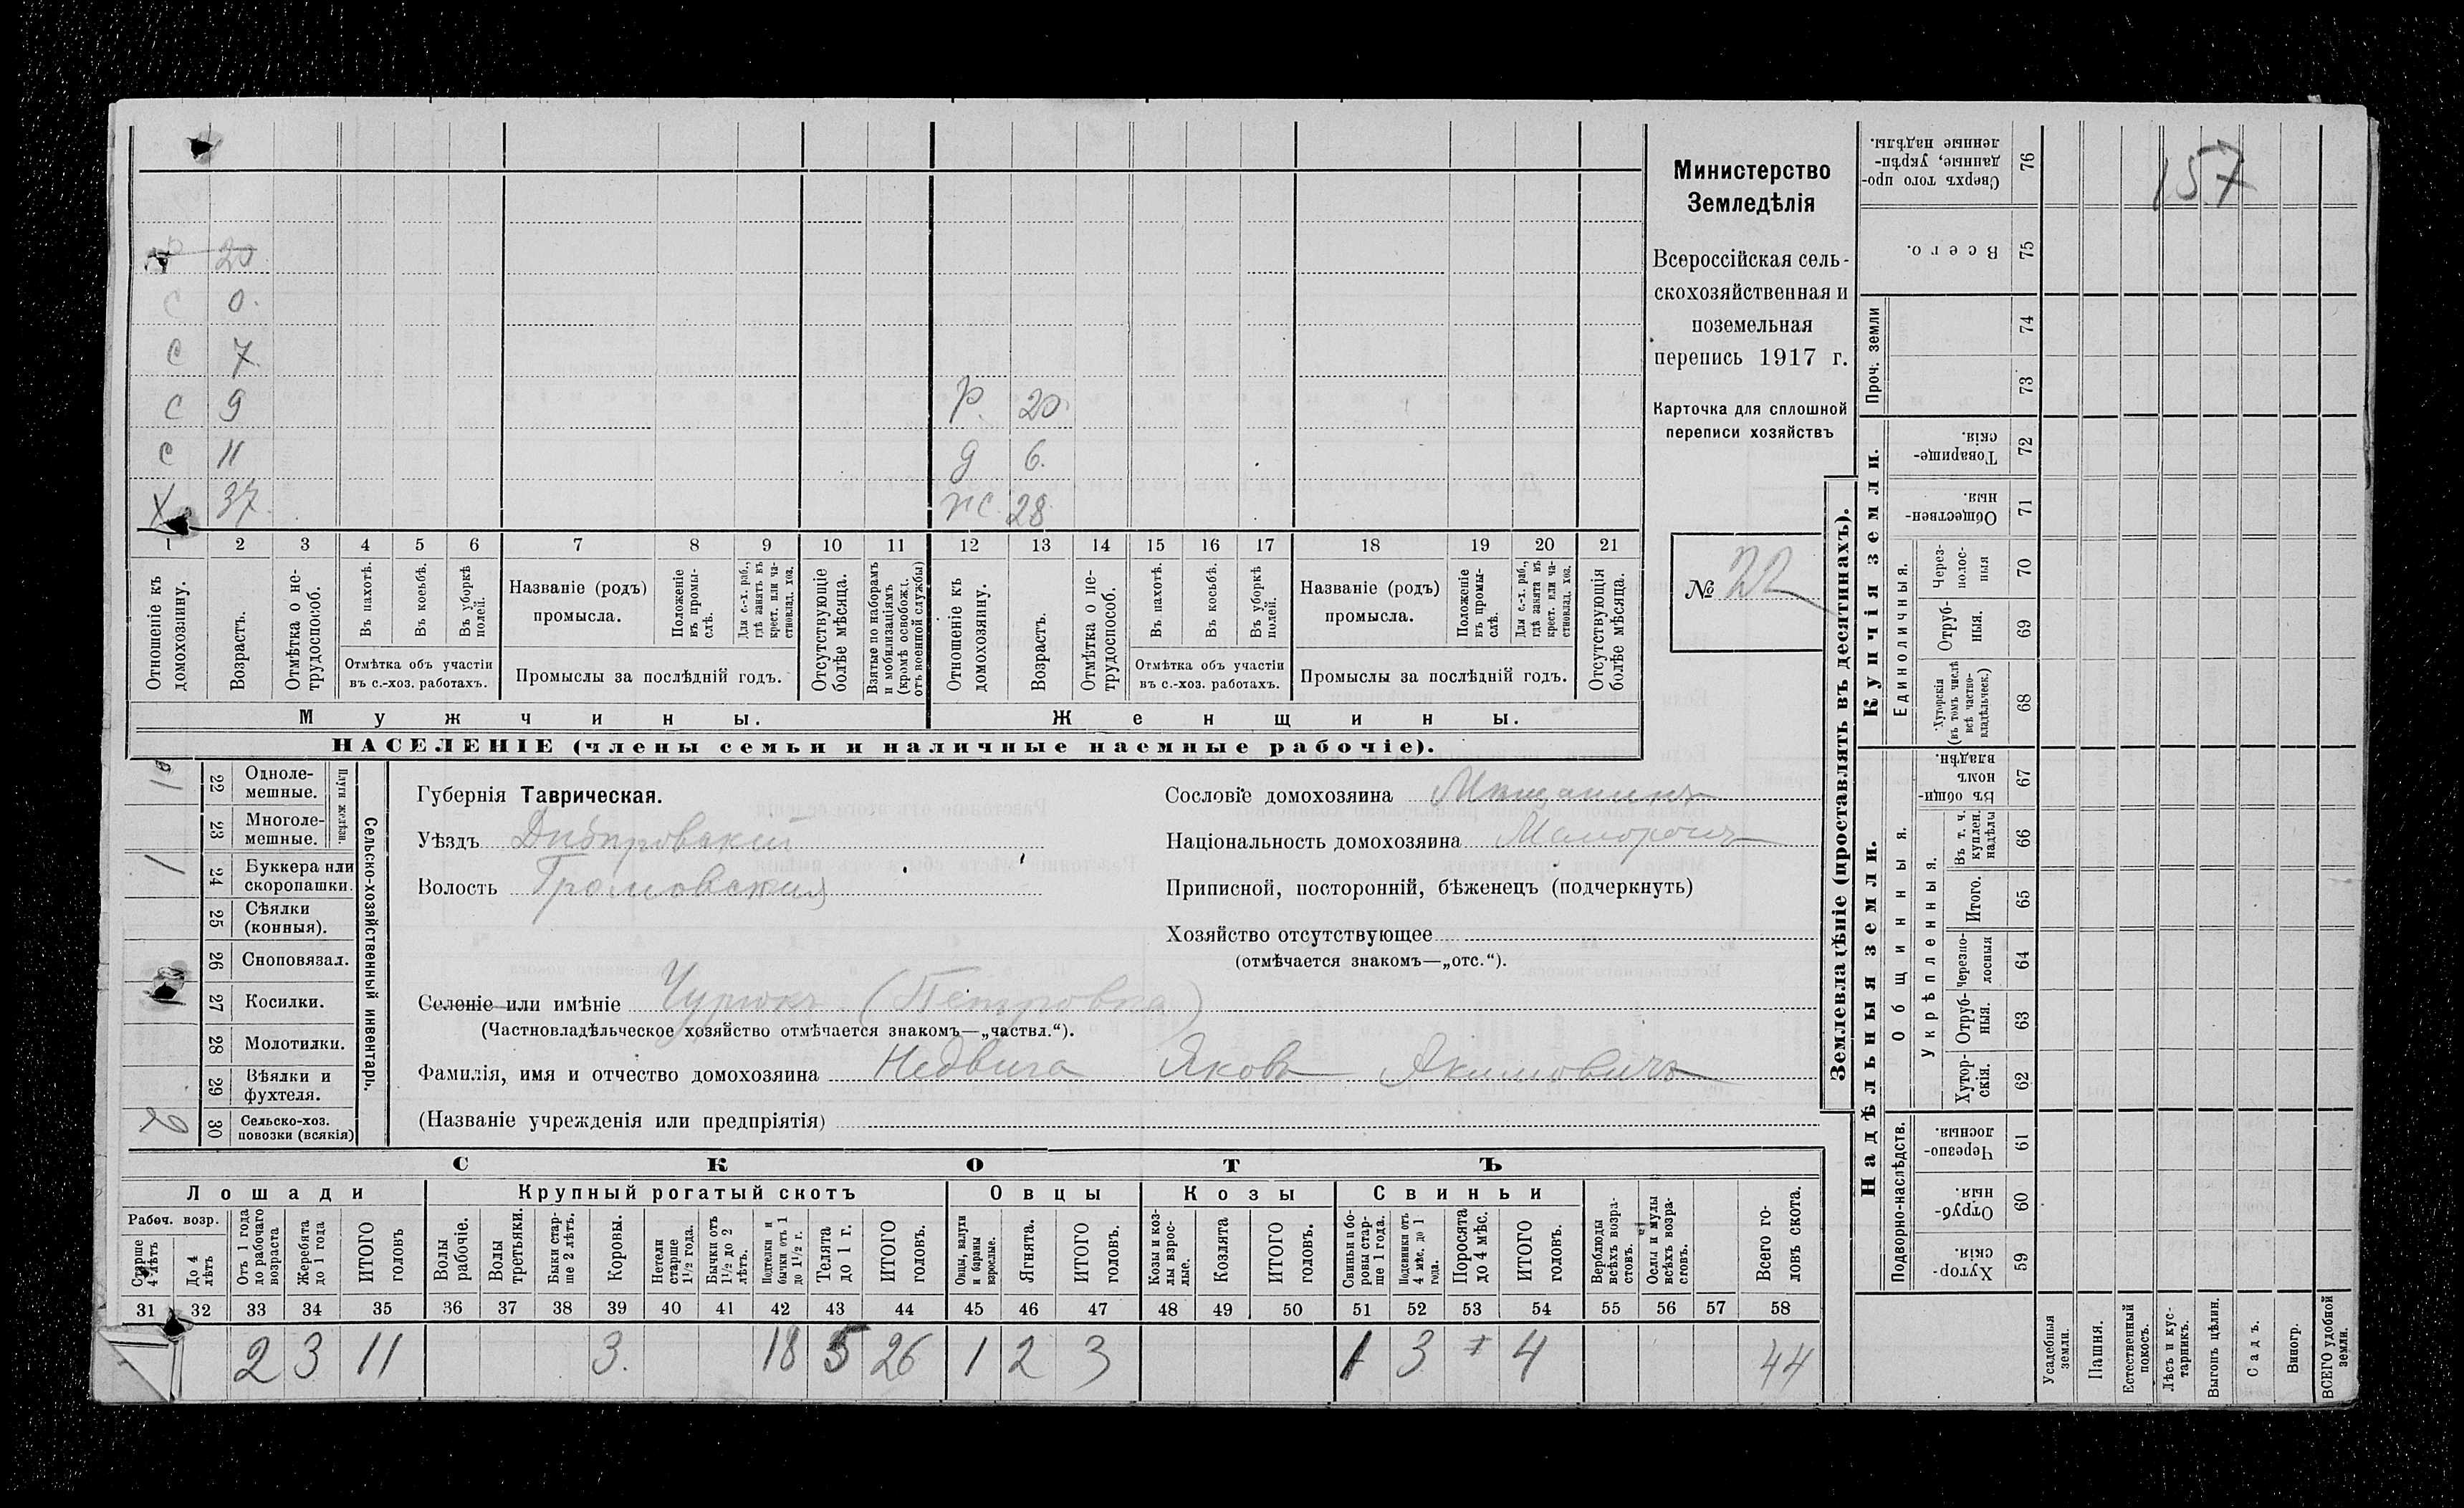 157
Министерство
Земледѣлія
Всероссійская сель-
скохозяйственная и
поземельная
перепись 1917 г.
Карточка для сплошной
переписи хозяйствъ
№ 22
20
С 0.
С 7
С 9
Р. 20
С 11
д 6.
Х 37.
ж 28
1 2 3 4 5 6 7 8 9 10 11 12 13 14 15 16 17 18 19 20 21
Отношеніе къ домохозяину.
Возрастъ.
Отмѣтка о не-трудоспособ.
Въ пахотѣ.
Въ косьбѣ.
Въ уборкѣ полей.
Отмѣтка объ участіи
въ с.-хоз. работахъ.
Названіе (родъ)
промысла.
Положеніе въ промы-слѣ.
Для с.-х. раб., гдѣ занятъ въ крест. или ча-стновлад. хоз.
Промыслы за послѣдній годъ.
Отсутствующіе болѣе мѣсяца.
Взятые по наборамъ и мобилизаціямъ (кромѣ освобожд. отъ военной службы)
Отношеніе къ домохозяину.
Возрастъ.
Отмѣтка о не-трудоспособ.
Въ пахотѣ.
Въ косьбѣ.
Въ уборкѣ полей.
Отмѣтка объ участіи
въ с.-хоз. работахъ.
Названіе (родъ)
промысла.
Положеніе въ промы-слѣ.
Для с.-х. раб., гдѣ занята въ крест. или ча-стновлад. хоз.
Промыслы за послѣдній годъ.
Отсутствующія болѣе мѣсяца.
Мужчины.
Женщины.
НАСЕЛЕНІЕ (члены семьи и наличные наемные рабочіе).
Сельско-хозяйственный инвентарь.
Плуги желѣзн.
22 Одноле-
мешные.
23 Многоле-
мешные.
1 24 Буккера или
скоропашки.
25 Сѣялки
(конныя).
26 Сноповязал.
27 Косилки.
28 Молотилки.
29 Вѣялки и
фухтеля.
2 30 Сельско-хоз.
повозки (всякія)
Губернія Таврическая.
Уѣздъ Днѣпровскій
Волость Громовская
Сословіе домохозяина Мѣщанинъ
Національность домохозяина Малороссъ
Приписной, посторонній, бѣженецъ (подчеркнуть)
Хозяйство отсутствующее
(отмѣчается знакомъ—„отс.“).
Селеніе или имѣніе Чурюкъ (Петровка)
(Частновладѣльческое хозяйство отмѣчается знакомъ—„частвл.“).
Фамилія, имя и отчество домохозяина Недвига Яковъ Якимовичъ
(Названіе учрежденія или предпріятія)
СКОТЪ
Лошади
Крупный рогатый скотъ
Овцы
Козы
Свиньи
Рабоч. возр.
Старше 4 лѣтъ
До 4 лѣтъ
Отъ 1 года до рабочаго возраста
Жеребята до 1 года
ИТОГО головъ
Волы рабочіе.
Волы третьяки.
Быки стар-ше 2 лѣтъ.
Коровы.
Нетели старше 1 1/2 года.
Бычки отъ 1 1/2 до 2 лѣтъ.
Подтелки и бычки отъ 1 до 1 1/2 г.
Телята до 1 г.
ИТОГО головъ.
Овцы, валухи и бараны взрослые.
Ягнята.
ИТОГО головъ.
Козы и коз-лы взрос-лые.
Козлята
ИТОГО головъ.
Свиньи и бо-ровы стар-ше 1 года.
Подсвинки отъ 4 мѣс. до 1 года.
Поросята до 4 мѣс.
ИТОГО головъ.
Верблюды всѣхъ возра-стовъ.
Ослы и мулы всѣхъ возра-стовъ.
Всего го-ловъ скота.
31 32 33 34 35 36 37 38 39 40 41 42 43 44 45 46 47 48 49 50 51 52 53 54 55 56 57 58
2 3 11 3. 18 5 26 1 2 3 1 3 4 44
Землевладѣніе (проставлять въ десятинахъ).
Купчія земли.
Надѣльныя земли.
Проч. земли
Единоличныя.
Общинныя.
Укрѣпленныя.
Подворно-наслѣдств.
Сверхъ того про-данные, укрѣп-ленные надѣлы. 76
Всего. 75
74
73
Товарище-скія. 72
Обществен-ныя. 71
Через-полос-ныя 70
Отруб-ныя. 69
Хуторскія (въ томъ числѣ всѣ частно-владѣльческ.) 68
Въ общи-номъ владѣн. 67
Въ т. ч. куплен. надѣлы 66
Итого. 65
Черезпо-лосныя 64
Отруб-ныя. 63
Хутор-скія. 62
Черезпо-лосныя. 61
Отруб-ныя. 60
Хутор-скія. 59
Усадебныя земли.
Пашня.
Естественный покосъ.
Лѣсъ и кус-тарникъ.
Выгонъ цѣлин.
Садъ.
Виногр.
ВСЕГО удобной земли.